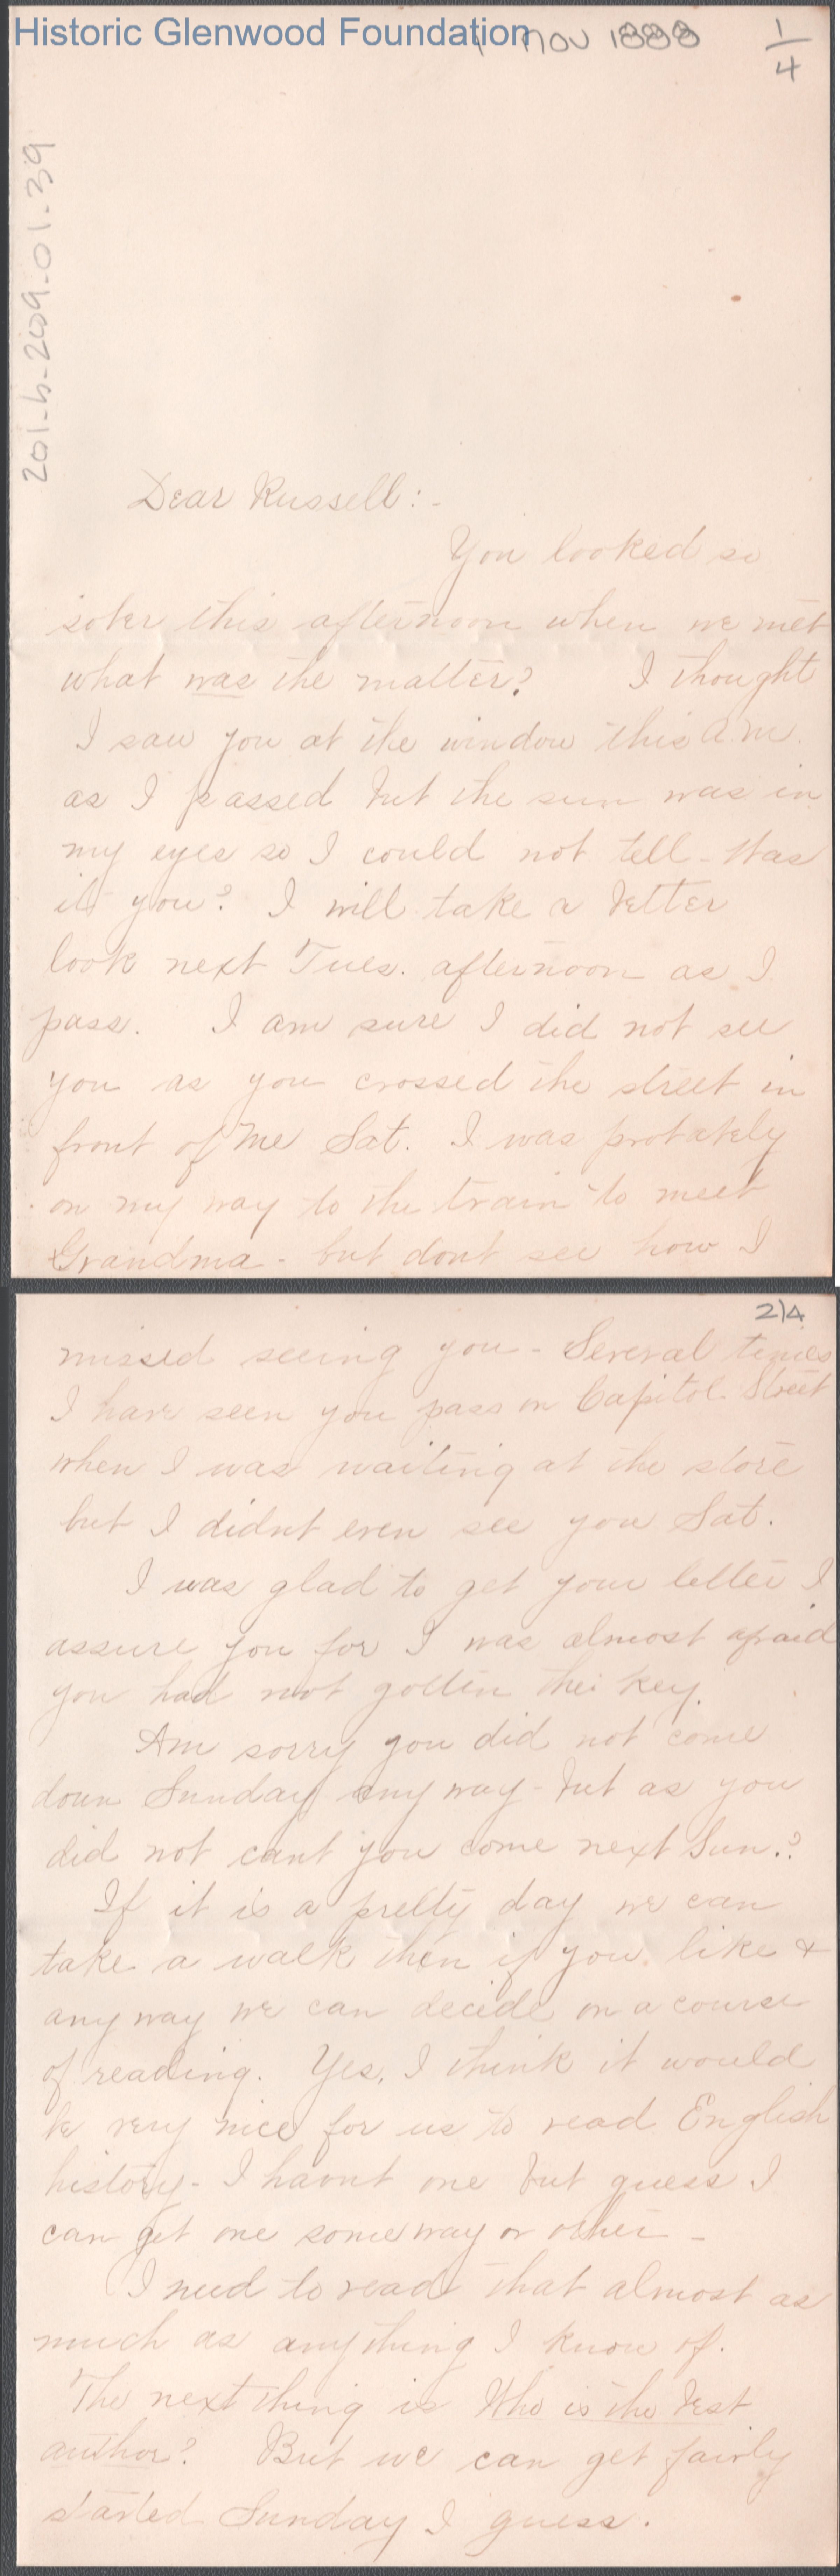 Historic Glenwood Foundation
1 Nov 1888
1/4
201-b-209-01.39
Dear Russell:-
You looked so
sober this afternoon when we met
what was the matter? I thought
I saw you at the window this A.M.
as I passed but the sun was in
my eyes so I could not tell - Was
it you? I will take a better
look next Tues. afternoon as I
pass. I am sure I did not see
you as you crossed the street in
front of me Sat. I was probably
on my way to the train to meet
Grandma - but dont see how I
2/4
missed seeing you - Several times
I have seen you pass on Capitol Street
when I was waiting at the store
but I didnt even see you Sat.
I was glad to get your letter I
assure you for I was almost afraid
you had not gotten the key.
Am sorry you did not come
down Sunday any way - but as you
did not cant you come next Sun.?
If it is a pretty day we can
take a walk then if you like &
any way we can decide on a course
of reading. Yes, I think it would
be very nice for us to read English
history - I havnt one but guess I
can get one some way or other -
I need to read that almost as
much as anything I know of.
The next thing is Who is the best
author? But we can get fairly
started Sunday I guess.